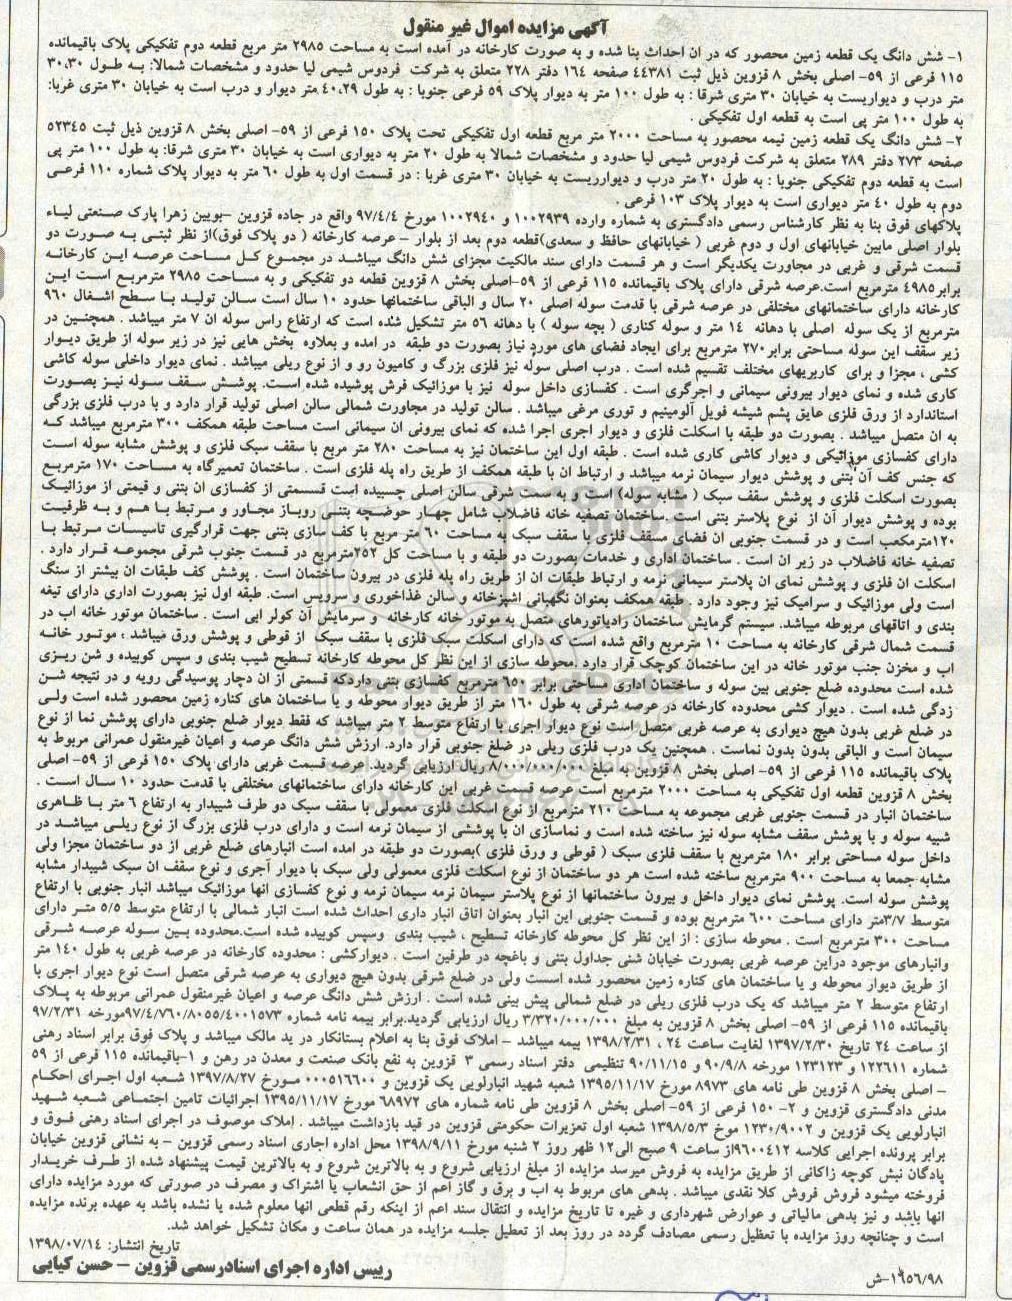 آگهی مزایده اموال غیر منقول
۱- شش دانگ یک قطعه زمین محصور که در ان احداث بنا شده و به صورت کارخانه در آمده است به مساحت ۲۹۸۵ متر مربع قطعه دوم تفکیکی پلاک باقیمانده
۱۱۵ فرعی از ۵۹- اصلی بخش ۸ قزوین ذیل ثبت ۴۴۳۸۱ صفحه ۱۶۴ دفتر ۲۲۸ متعلق به شرکت فردوس شیمی لیا حدود و مشخصات شمالا: به طول ۳۰،۳۰
متر درب و دیواریست به خیابان ۳۰ متری شرقا : به طول ۱۰۰ متر به دیوار پلاک ۵۹ فرعی جنوبا : به طول ۴۰،۲۹ متر دیوار و درب است به خیابان ۳۰ متری غربا:
به طول ۱۰۰ متر پی است به قطعه اول تفکیکی .
۲- شش دانگ یک قطعه زمین نیمه محصور به مساحت ۲۰۰۰ متر مربع قطعه اول تفکیکی تحت پلاک ۱۵۰ فرعی از ۵۹- اصلی بخش ۸ قزوین ذیل ثبت ۵۲۳۴۵
صفحه ۲۷۳ دفتر ۲۸۹ متعلق به شرکت فردوس شیمی لیا حدود و مشخصات شمالا به طول ۲۰ متر به دیواری است به خیابان ۳۰ متری شرقا: به طول ۱۰۰ متر پی
است به قطعه دوم تفکیکی جنوبا : به طول ۲۰ متر درب و دیوارریست به خیابان ۳۰ متری غربا : در قسمت اول به طول ۶۰ متر به دیوار پلاک شماره ۱۱۰ فرعی
دوم به طول ۴۰ متر دیواری است به دیوار پلاک ۱۰۳ فرعی .
پلاکهای فوق بنا به نظر کارشناس رسمی دادگستری به شماره وارده ۱۰۰۲۹۳۹ و ۱۰۰۲۹۴۰ مورخ ۹۷/۴/۴ واقع در جاده قزوین -بویین زهرا پارک صنعتی لیاء
بلوار اصلی مابین خیابانهای اول و دوم غربی ( خیابانهای حافظ و سعدی)قطعه دوم بعد از بلوار - عرصه کارخانه ( دو پلاک فوق)از نظر ثبتی به صورت دو
قسمت شرقی و غربی در مجاورت یکدیگر است و هر قسمت دارای سند مالکیت مجزای شش دانگ میباشد در مجموع کل مساحت عرصه این کارخانه
برابر۴۹۸۵ مترمربع است.عرصه شرقی دارای پلاک باقیمانده ۱۱۵ فرعی از ۵۹-اصلی بخش ۸ قزوین قطعه دو تفکیکی و به مساحت ۲۹۸۵ مترمربع است این
کارخانه دارای ساختمانهای مختلفی در عرصه شرقی با قدمت سوله اصلی ۲۰ سال و الباقی ساختمانها حدود ۱۰ سال است سالن تولید با سطح اشغال ۹۶۰
مترمربع از یک سوله اصلی با دهانه ۱۴ متر و سوله کناری ( بچه سوله ) با دهانه ۵۶ متر تشکیل شده است که ارتفاع راس سوله ان ۷ متر میباشد . همچنین در
زیر سقف این سوله مساحتی برابر۲۷۰ مترمربع برای ایجاد فضای های مورد نیاز بصورت دو طبقه در امده و بعلاوه بخش هایی نیز در زیر سوله از طریق دیوار
کشی ، مجزا و برای کاربریهای مختلف تقسیم شده است . درب اصلی سوله نیز فلزی بزرگ و کامیون رو و از نوع ریلی میباشد . نمای دیوار داخلی سوله کاشی
کاری شده و نمای دیوار بیرونی سیمانی و اجرگری است . کفسازی داخل سوله نیز با موزائیک فرش پوشیده شده است. پوشش سقف سوله نیز بصورت
استاندارد از ورق فلزی عایق پشم شیشه فویل آلومینیم و توری مرغی میباشد . سالن تولید در مجاورت شمالی سالن اصلی تولید قرار دارد و با درب فلزی بزرگی
به ان متصل میباشد . بصورت دو طبقه با اسکلت فلزی و دیوار اجری اجرا شده که نمای بیرونی ان سیمانی است مساحت طبقه همکف ۳۰۰ مترمربع میباشد که
دارای کفسازی موزائیکی و دیوار کاشی کاری شده است . طبقه اول این ساختمان نیز به مساحت ۲۸۰ متر مربع با سقف سبک فلزی و پوشش مشابه سوله است
که جنس کف آن بتنی و پوشش دیوار سیمان نرمه میباشد و ارتباط ان با طبقه همکف از طریق راه پله فلزی است . ساختمان تعمیرگاه به مساحت ۱۷۰ مترمربع
بصورت اسکلت فلزی و پوشش سقف سبک ( مشابه سوله) است و به سمت شرقی سالن اصلی چسبیده است قسمتی از کفسازی ان بتنی و قیمتی از موزائیک
بوده و پوشش دیوار آن از نوع پلاستر بتنی است .ساختمان تصفیه خانه فاضلاب شامل چهار حوضچه بتنی روباز مجاور و مرتبط با هم و به ظرفیت
۱۲۰مترمکعب است و در قسمت جنوبی ان فضای مسقف فلزی با سقف سبک به مساحت ۶۰ متر مربع با کف سازی بتنی جهت قرارگیری تاسیسات مرتبط با
تصفیه خانه فاضلاب در زیر ان است . ساختمان اداری و خدمات بصورت دو طبقه و با مساحت کل ۲۵۲مترمربع در قسمت جنوب شرقی مجموعه قرار دارد .
اسکلت ان فلزی و پوشش نمای ان پلاستر سیمانی نرمه و ارتباط طبقات ان از طریق راه پله فلزی در بیرون ساختمان است . پوشش کف طبقات ان بیشتر از سنگ
است ولی موزائیک و سرامیک نیز وجود دارد . طبقه همکف بعنوان نگهبانی اشپزخانه و سالن غذاخوری و سرویس است. طبقه اول نیز بصورت اداری دارای تیغه
بندی و اتاقهای مربوطه میباشد. سیستم گرمایش ساختمان رادیاتورهای متصل به موتور خانه کارخانه و سرمایش آن کولر ابی است . ساختمان موتور خانه اب در
قسمت شمال شرقی کارخانه به مساحت ۱۰ مترمربع واقع شده است که دارای اسکلت سبک فلزی با سقف سبک از قوطی و پوشش ورق میباشد ، موتور خانه
اب و مخزن جنب موتور خانه در این ساختمان کوچک قرار دارد .محوطه سازی از این نظر کل محوطه کارخانه تسطیح شیب بندی و سپس کوبیده و شن ریزی
شده است محدوده ضلع جنوبی بین سوله و ساختمان اداری مساحتی برابر ۶۵۰ مترمربع کفسازی بتنی داردکه قسمتی از ان دچار پوسیدگی رویه و در نتیجه شن
زدگی شده است . دیوار کشی محدوده کارخانه در عرصه شرقی به طول ۱۶۰ متر از طریق دیوار محوطه و یا ساختمان های کناره زمین محصور شده است ولی
در ضلع غربی بدون هیچ دیواری به عرصه غربی متصل است نوع دیوار اجری با ارتفاع متوسط ۲ متر میباشد که فقط دیوار ضلع جنوبی دارای پوشش نما از نوع
سیمان است و الباقی بدون بدون نماست . همچنین یک درب فلزی ریلی در ضلع جنوبی قرار دارد. ارزش شش دانگ عرصه و اعیان غیرمنقول عمرانی مربوط به
پلاک باقیمانده ۱۱۵ فرعی از ۵۹- اصلی بخش ۸ قزوین به مبلغ ۸/۰۰۰/۰۰۰/۰۰۰ریال ارزیابی گردید. عرصه قسمت غربی دارای پلاک ۱۵۰ فرعی از ۵۹- اصلی
بخش ۸ قزوین قطعه اول تفکیکی به مساحت ۲۰۰۰ مترمربع است عرصه قسمت غربی این کارخانه دارای ساختمانهای مختلفی با قدمت حدود ۱۰ سال است .
ساختمان انبار در قسمت جنوبی غربی مجموعه به مساحت ۲۱۰ مترمربع از نوع اسکلت فلزی معمولی با سقف سبک دو طرف شیبدار به ارتفاع ۶ متر با ظاهری
شبیه سوله و با پوشش سقف مشابه سوله نیز ساخته شده است و نماسازی ان با پوششی از سیمان نرمه است و دارای درب فلزی بزرگ از نوع ریلی میباشد در
داخل سوله مساحتی برابر ۱۸۰ مترمربع با سقف فلزی سبک ( قوطی و ورق فلزی )بصورت دو طبقه در امده است انبارهای ضلع غربی از دو ساختمان مجزا ولی
مشابه جمعا به مساحت ۹۰۰ مترمربع ساخته شده است هر دو ساختمان از نوع اسکلت فلزی معمولی ولی سبک با دیوار آجری و نوع سقف ان سبک شیبدار مشابه
پوشش سوله است. پوشش نمای دیوار داخل و بیرون ساختمانها از نوع پلاستر سیمان نرمه سیمان نرمه و نوع کفسازی انها موزائیک میباشد انبار جنوبی با ارتفاع
متوسط ۳/۷متر دارای مساحت ۶۰۰ مترمربع بوده و قسمت جنوبی این انبار بعنوان اتاق انبار داری احداث شده است انبار شمالی با ارتفاع متوسط ۵/۵ متر دارای
مساحت ۳۰۰ مترمربع است . محوطه سازی : از این نظر کل محوطه کارخانه تسطیح ، شیب بندی وسپس کوبیده شده است.محدوده بین سوله عرصه شرقی
وانبارهای موجود دراین عرصه غربی بصورت خیابان شنی جداول بتنی و باغچه در طرفین است . دیوارکشی : محدوده کارخانه در عرصه غربی به طول ۱۴۰ متر
از طریق دیوار محوطه و یا ساختمان های کناره زمین محصور شده است ولی در ضلع شرقی بدون هیچ دیواری به عرصه شرقی متصل است نوع دیوار اجری با
ارتفاع متوسط ۲ متر میباشد که یک درب فلزی ریلی در ضلع شمالی پیش بینی شده است . ارزش شش دانگ عرصه و اعیان غیرمنقول عمرانی مربوطه به پلاک
باقیمانده ۱۱۵ فرعی از ۵۹- اصلی بخش ۸ قزوین به مبلغ ۳/۳۲۰/۰۰۰/۰۰۰ ریال ارزیابی گردید.برابر بیمه نامه شماره ۹۷/۴/۷۶۰/۸۰۵۵/۴۰۰۱۵۷۳مورخه ۹۷/۲/۳۱
از ساعت ۲۴ تاریخ ۱۳۹۷/۲/۳۰ لغایت ساعت ۲۴ ، ۱۳۹۸/۲/۳۱ بیمه میباشد - املاک فوق بنا به اعلام بستانکار در ید مالک میباشد و پلاک فوق برابر اسناد رهنی
شماره ۱۲۲۶۱۱ و ۱۲۳۱۲۳ مورخه ۹۰/۹/۸ و ۹۰/۱۱/۱۵ تنظیمی دفتر اسناد رسمی ۳ قزوین به نفع بانک صنعت و معدن در رهن و ۱-باقیمانده ۱۱۵ فرعی از ۵۹
- اصلی بخش ۸ قزوین طی نامه های ۸۹۷۳ مورخ ۱۳۹۵/۱۱/۱۷ شعبه شهید انبارلویی یک قزوین و ۰۰۰۵۱۶۶۰۰ مورخ ۱۳۹۷/۸/۲۷ شعبه اول اجرای احکام
مدنی دادگستری قزوین و ۲- ۱۵۰ فرعی از ۵۹- اصلی بخش ۸ قزوین طی نامه شماره های ۶۸۹۷۲ مورخ ۱۳۹۵/۱۱/۱۷ اجرائیات تامین اجتماعی شعبه شهید
انبارلویی یک قزوین و ۱۲۳۰/۹۰۰۲ موخ ۱۳۹۸/۵/۳ شعبه اول تعزیرات حکومتی قزوین در قید بازداشت میباشد . املاک موصوف در اجرای اسناد رهنی فوق و
برابر پرونده اجرایی کلاسه ۹۶۰۰۴۱۲از ساعت ۹ صبح الی۱۲ ظهر روز ۲ شنبه مورخ ۱۳۹۸/۹/۱۱ محل اداره اجاری اسناد رسمی قزوین - به نشانی قزوین خیابان
پادگان نبش کوچه زاکانی از طریق مزایده به فروش میرسد مزایده از مبلغ ارزیابی شروع و به بالاترین شروع و به بالاترین قیمت پیشنهاد شده از طرف خریدار
فروخته میشود فروش فروش کلا نقدی میباشد . بدهی های مربوط به اب و برق و گاز اعم از حق انشعاب یا اشتراک و مصرف در صورتی که مورد مزایده دارای
انها باشد و نیز بدهی مالیاتی و عوارض شهرداری و غیره تا تاریخ مزایده و انتقال سند اعم از اینکه رقم قطعی انها معلوم شده یا نشده باشد به عهده برنده مزایده
است و چنانچه روز مزایده با تعطیل رسمی مصادف گردد در روز بعد از تعطیل جلسه مزایده در همان ساعت و مکان تشکیل خواهد شد.
تاریخ انتشار: ۱۳۹۸/۰۷/۱۴
رییس اداره اجرای اسنادرسمی قزوین - حسن کیایی